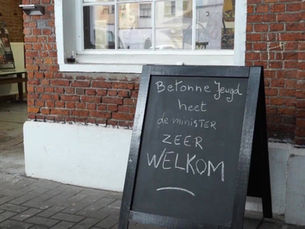 Betonne Jeugd
heet
de minister
ZEER
WELKOM